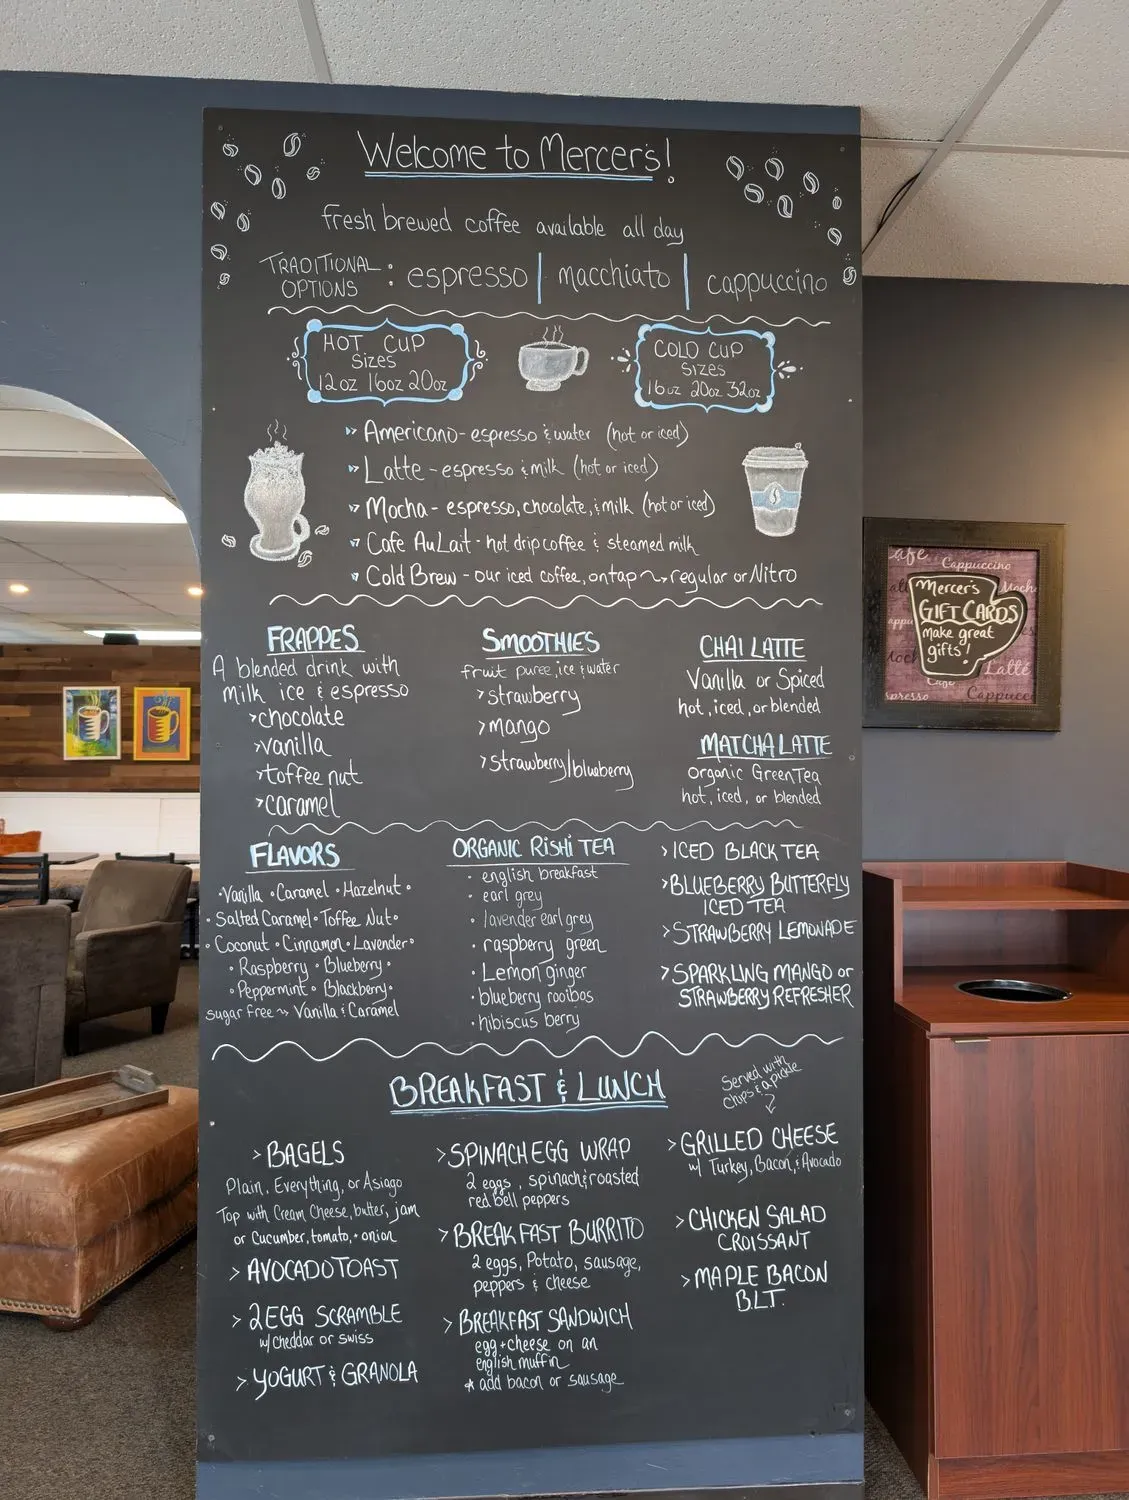 Welcome to Mercer's!
fresh brewed coffee available all day
TRADITIONAL OPTIONS : espresso | macchiato | cappuccino
HOT CUP
Sizes
12oz 16oz 20oz
COLD CUP
SIZES
16oz 20oz 32oz
Americano - espresso & water (hot or iced)
Latte - espresso & milk (hot or iced)
Mocha - espresso, chocolate, & milk (hot or iced)
Cafe Au Lait - hot drip coffee & steamed milk
Cold Brew - our iced coffee, on tap ~> regular or Nitro
FRAPPES
A blended drink with
milk ice & espresso
>chocolate
>vanilla
>toffee nut
>caramel
SMOOTHIES
fruit puree, ice & water
>strawberry
>mango
>strawberry/blueberry
CHAI LATTE
Vanilla or Spiced
hot, iced, or blended
MATCHA LATTE
Organic Green Tea
hot, iced, or blended
FLAVORS
•Vanilla •Caramel •Hazelnut•
•Salted Caramel•Toffee Nut•
•Coconut •Cinnamon•Lavender•
•Raspberry •Blueberry•
•Peppermint •Blackberry•
sugar free ~> Vanilla & Caramel
ORGANIC RISHI TEA
• english breakfast
• earl grey
• lavender earl grey
• raspberry green
• Lemon ginger
• blueberry rooibos
• hibiscus berry
>ICED BLACK TEA
>BLUEBERRY BUTTERFLY
ICED TEA
>STRAWBERRY LEMONADE
>SPARKLING MANGO or
STRAWBERRY REFRESHER
BREAKFAST & LUNCH
Served with
chips & a pickle
> BAGELS
Plain, Everything, or Asiago
Top with Cream Cheese, butter, jam
or Cucumber, tomato, + onion
> AVOCADO TOAST
> 2 EGG SCRAMBLE
w/ Cheddar or swiss
> YOGURT & GRANOLA
>SPINACH EGG WRAP
2 eggs, spinach & roasted
red bell peppers
> BREAKFAST BURRITO
2 eggs, Potato, sausage,
peppers & cheese
> BREAKFAST SANDWICH
egg + cheese on an
english muffin
* add bacon or sausage
>GRILLED CHEESE
w/ Turkey, Bacon, & Avocado
>CHICKEN SALAD
CROISSANT
>MAPLE BACON
BLT.
Cappuccino
Mercer's
GIFT CARDS
make great
gifts!
Latté
Cappucc